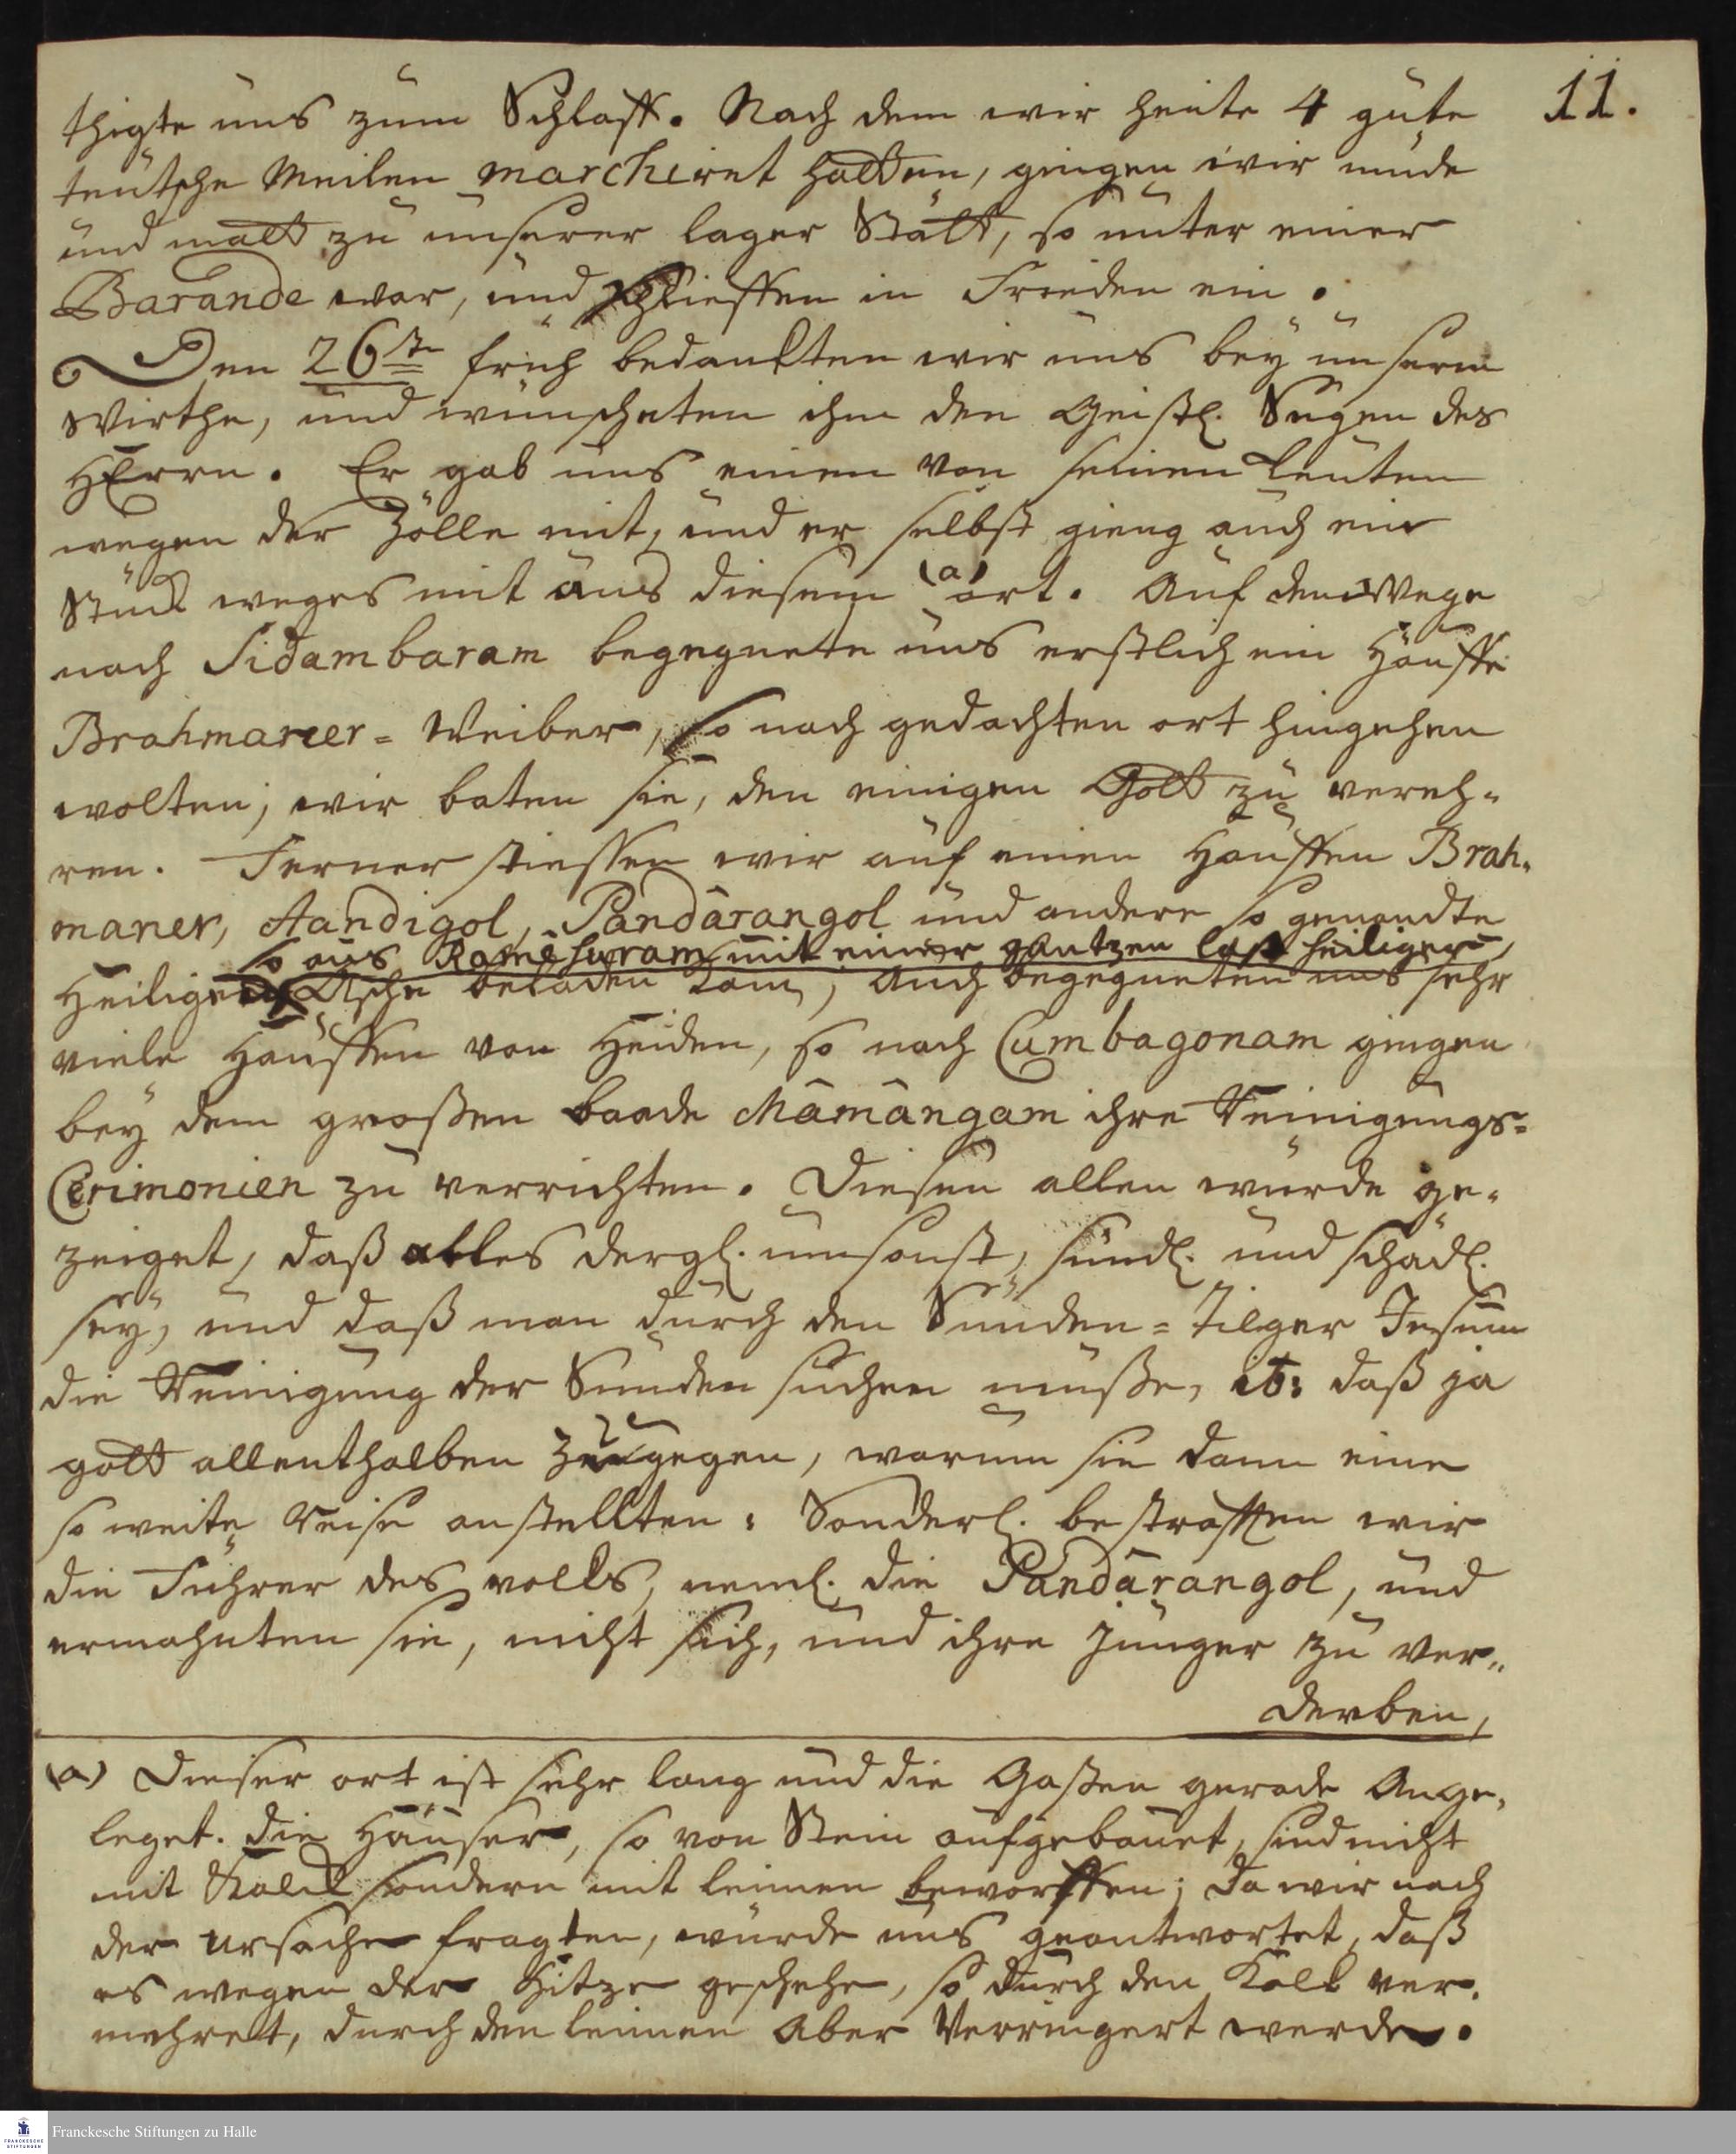 11.
thigte uns zum Schlaff. Nach dem wir heute 4 gute
teutsche Meilen marchiret hatten, gingen wir müde
und matt zu unserer lager Stätt, so unter einer
Barande war, und schlieffen in Frieden ein.
Den 26st. früh bedanckten wir uns bey unserm
Wirthe, und wünscheten ihm den Geistl. Seegen des
HErrn. Er gab uns einen von seinen Leuten
wegen der Zölle mit, und er selbst gieng auch ein
Stück weges mit aus diesem (a) ort. Auf dem Wege
nach Sidambaram begegnete uns erstlich ein Hauffe
Brahmaner-Weiber, so nach gedachten ort hingehen
wolten; wir baten sie, den einigen Gott zu vereh-
ren. Ferner stiessen wir auf einen Hauffen Brah-
maner, Aandigöl, Pandârangöl und andere so genandte
so aus Ramêsuram mit einer gantzen last heiliger
Heilige Asche beladen kam; Auch begegneten uns sehr
viele Hauffen von Heiden, so nach Cumbagonam gingen
bey dem großen baade Mâmângam ihre Reinigungs-
Cerimonien zu verrichten. Diesen allen wurde ge-
zeiget, daß alles dergl. umsonst, sündl. und schädl.
sey, und daß man durch den Sünden-Tilger Jesum
die Reinigung der Sünden suchen müße, it: daß ja
gott allenthalben zugegen, warum sie dann eine
so weite Reise anstellten: Sonderl. bestrafften wir
die Führer des volcks, neml. die Pandârangöl, und
ermahnten sie, nicht sich, und ihre Jünger zu ver-
derben,
(a) Dieser ort ist sehr lang und die Gaßen gerade Ange-
leget. Die Häuser, so von Stein aufgebauet, sind nicht
mit Kalck sondern mit leimen beworffen; Da wir nach
der ursache fragten, wurde uns geantwortet, daß
es wegen der Hitze geschehe, so durch den Kalck ver-
mehret, durch den leimen Aber Verringert werde.
Franckesche Stiftungen zu Halle